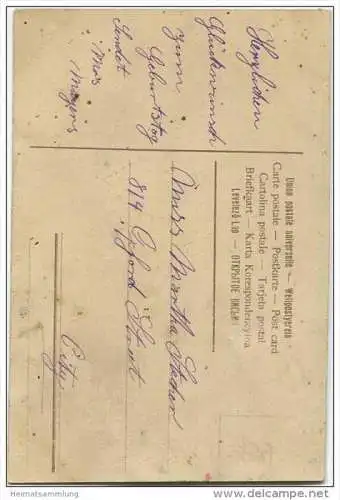 Union postale universelle — Weltpostverein
Carte postale — Postkarte — Post card
Cartolina postale — Tarjeta postal
Briefkaart — Karta Korespondencyjna
Levelező-Lap — ОТКРЫТОЕ ПИСЬМО
Herzlichen
Glückwunsch
zum
Geburtstag
Sendet
Mrs
Meyers
Miss Martha
814 Oxford Street
City
© Heimatsammlung
www.ansichtskartenversand.com